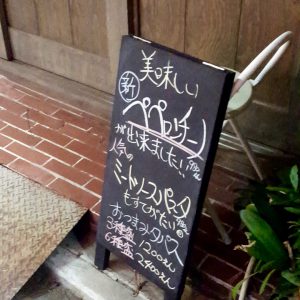 美味しい
新
ペペロンチーノ
が出来ました!!
人気の
ミートソースパスタ
もすてがたい
おつまみタパス
3種盛 1200えん
6種盛 2400えん